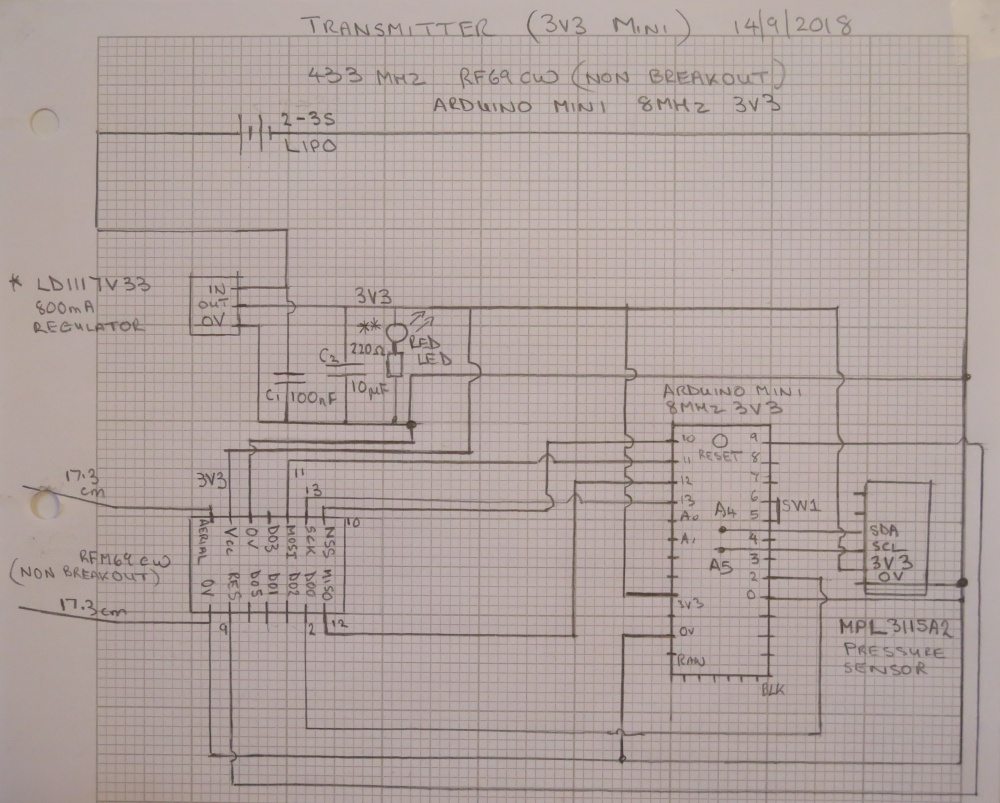 TRANSMITTER (3V3 MINI) 14/9/2018
433 MHZ RF69CW (NON BREAKOUT)
ARDUINO MINI 8MHZ 3V3
2-3S
LIPO
* LD1117V33
800mA
REGULATOR
IN
OUT
0V
3V3
**
RED
LED
220Ω
C2
10µF
C1
100nF
ARDUINO MINI
8MHZ 3V3
10
9
RESET
11
8
12
7
13
6
A0
5
SW1
A4
A1
4
3
A5
2
0
3V3
0V
RAW
BLK
SDA
SCL
3V3
0V
MPL3115A2
PRESSURE
SENSOR
17.3
cm
3V3
11
13
10
AERIAL
VCC
0V
DO3
MOSI
SCK
NSS
0V
RES
DO5
DO1
DO2
DO0
MISO
RFM69CW
(NON BREAKOUT)
17.3cm
9
2
12